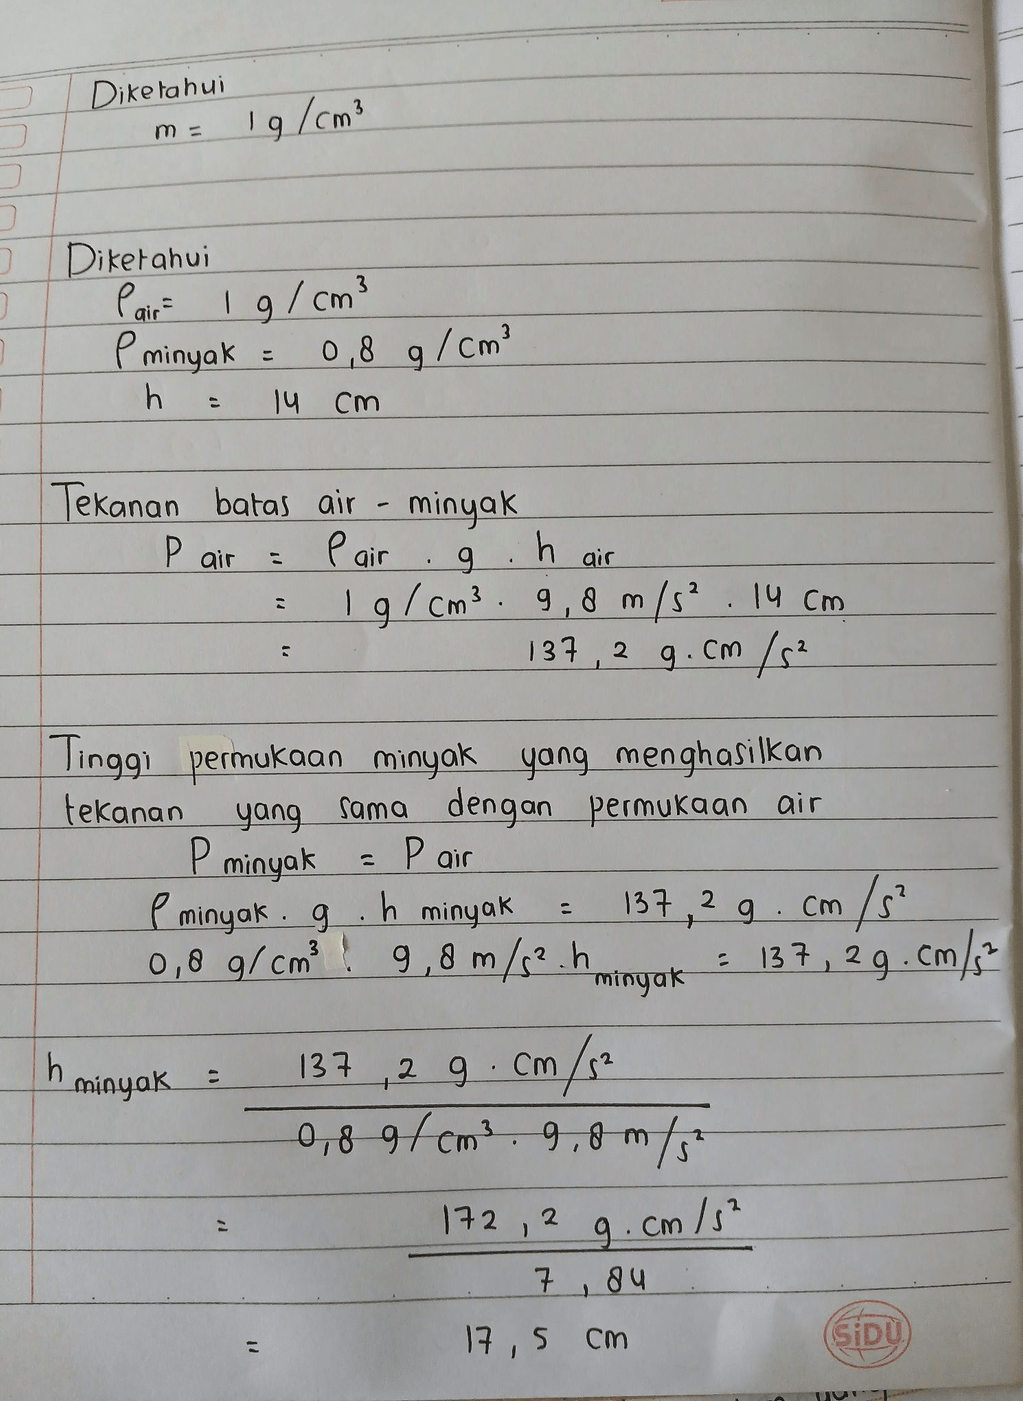 Diketahui
m = 1 g/cm³
Diketahui
ρ air = 1 g/cm³
ρ minyak = 0,8 g/cm³
h = 14 cm
Tekanan batas air - minyak
P air = ρ air . g . h air
= 1 g/cm³ . 9,8 m/s² . 14 cm
= 137,2 g.cm/s²
Tinggi permukaan minyak yang menghasilkan
tekanan yang sama dengan permukaan air
P minyak = P air
ρ minyak . g . h minyak = 137,2 g . cm/s²
0,8 g/cm³ . 9,8 m/s² . h minyak = 137,2 g . cm/s²
h minyak = 137,2 g . cm/s²
0,8 g/cm³ . 9,8 m/s²
= 172,2 g.cm/s²
7,84
= 17,5 cm
SiDU